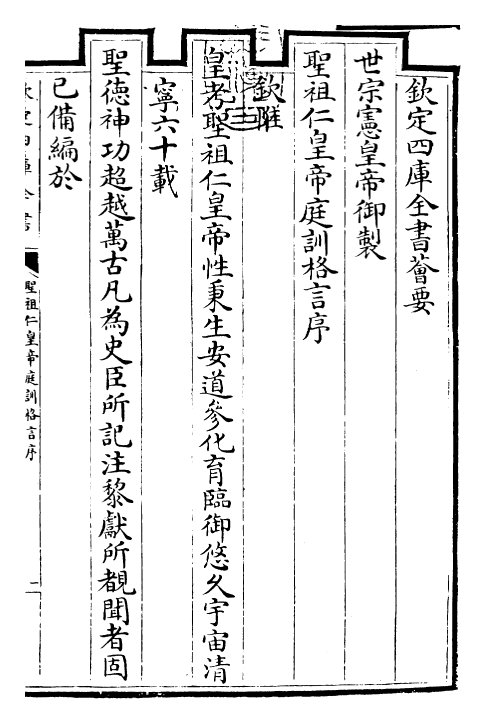 欽定四庫全書薈要
世宗憲皇帝御製
聖祖仁皇帝庭訓格言序
欽惟
皇考聖祖仁皇帝性秉生安道參化育臨御悠久宇宙清
寧六十載
聖德神功超越萬古凡為史臣所記注黎獻所覩聞者固
已備編於
欽定四庫全書
聖祖仁皇帝庭訓格言序